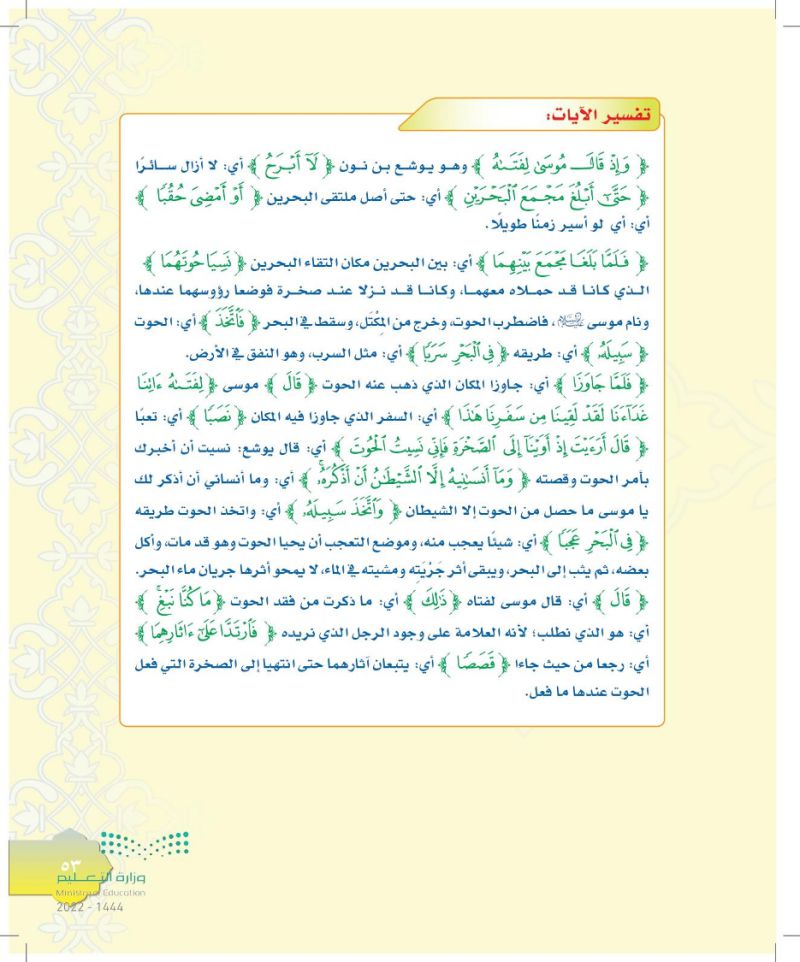 تفسير الآيات:
﴿ وَإِذْ قَالَ مُوسَىٰ لِفَتَىٰهُ ﴾ وهو يوشع بن نون ﴿ لَآ أَبْرَحُ ﴾ أي: لا أزال سائرًا
﴿ حَتَّىٰٓ أَبْلُغَ مَجْمَعَ ٱلْبَحْرَيْنِ ﴾ أي: حتى أصل ملتقى البحرين ﴿ أَوْ أَمْضِىَ حُقُبًا ﴾
أي: أي لو أسير زمنًا طويلًا.
﴿ فَلَمَّا بَلَغَا مَجْمَعَ بَيْنِهِمَا ﴾ أي: بين البحرين مكان التقاء البحرين ﴿ نَسِيَا حُوتَهُمَا ﴾
الذي كانا قد حملاه معهما، وكانا قد نزلا عند صخرة فوضعا رؤوسهما عندها،
ونام موسى ، فاضطرب الحوت، وخرج من المِكْتَل، وسقط في البحر ﴿ فَٱتَّخَذَ ﴾ أي: الحوت
﴿ سَبِيلَهُۥ ﴾ أي: طريقه ﴿ فِى ٱلْبَحْرِ سَرَبًا ﴾ أي: مثل السرب، وهو النفق في الأرض.
﴿ فَلَمَّا جَاوَزَا ﴾ أي: جاوزا المكان الذي ذهب عنه الحوت ﴿ قَالَ ﴾ موسى ﴿ لِفَتَىٰهُ ءَاتِنَا
غَدَآءَنَا لَقَدْ لَقِينَا مِن سَفَرِنَا هَٰذَا ﴾ أي: السفر الذي جاوزا فيه المكان ﴿ نَصَبًا ﴾ أي: تعبًا
﴿ قَالَ أَرَءَيْتَ إِذْ أَوَيْنَآ إِلَى ٱلصَّخْرَةِ فَإِنِّى نَسِيتُ ٱلْحُوتَ ﴾ أي: قال يوشع: نسيت أن أخبرك
بأمر الحوت وقصته ﴿ وَمَآ أَنسَىٰنِيهُ إِلَّا ٱلشَّيْطَٰنُ أَنْ أَذْكُرَهُۥ ﴾ أي: وما أنساني أن أذكر لك
يا موسى ما حصل من الحوت إلا الشيطان ﴿ وَٱتَّخَذَ سَبِيلَهُۥ ﴾ أي: واتخذ الحوت طريقه
﴿ فِى ٱلْبَحْرِ عَجَبًا ﴾ أي: شيئًا يعجب منه، وموضع التعجب أن يحيا الحوت وهو قد مات، وأكل
بعضه، ثم يثب إلى البحر، ويبقى أثر جَرْيَتِه ومشيته في الماء، لا يمحو أثرها جريان ماء البحر.
﴿ قَالَ ﴾ أي: قال موسى لفتاه ﴿ ذَٰلِكَ ﴾ أي: ما ذكرت من فقد الحوت ﴿ مَا كُنَّا نَبْغِ ﴾
أي: هو الذي نطلب؛ لأنه العلامة على وجود الرجل الذي نريده ﴿ فَٱرْتَدَّا عَلَىٰٓ ءَاثَارِهِمَا ﴾
أي: رجعا من حيث جاءا ﴿ قَصَصًا ﴾ أي: يتبعان آثارهما حتى انتهيا إلى الصخرة التي فعل
الحوت عندها ما فعل.
٥٣
وزارة التعليم
Ministry of Education
2022 - 1444